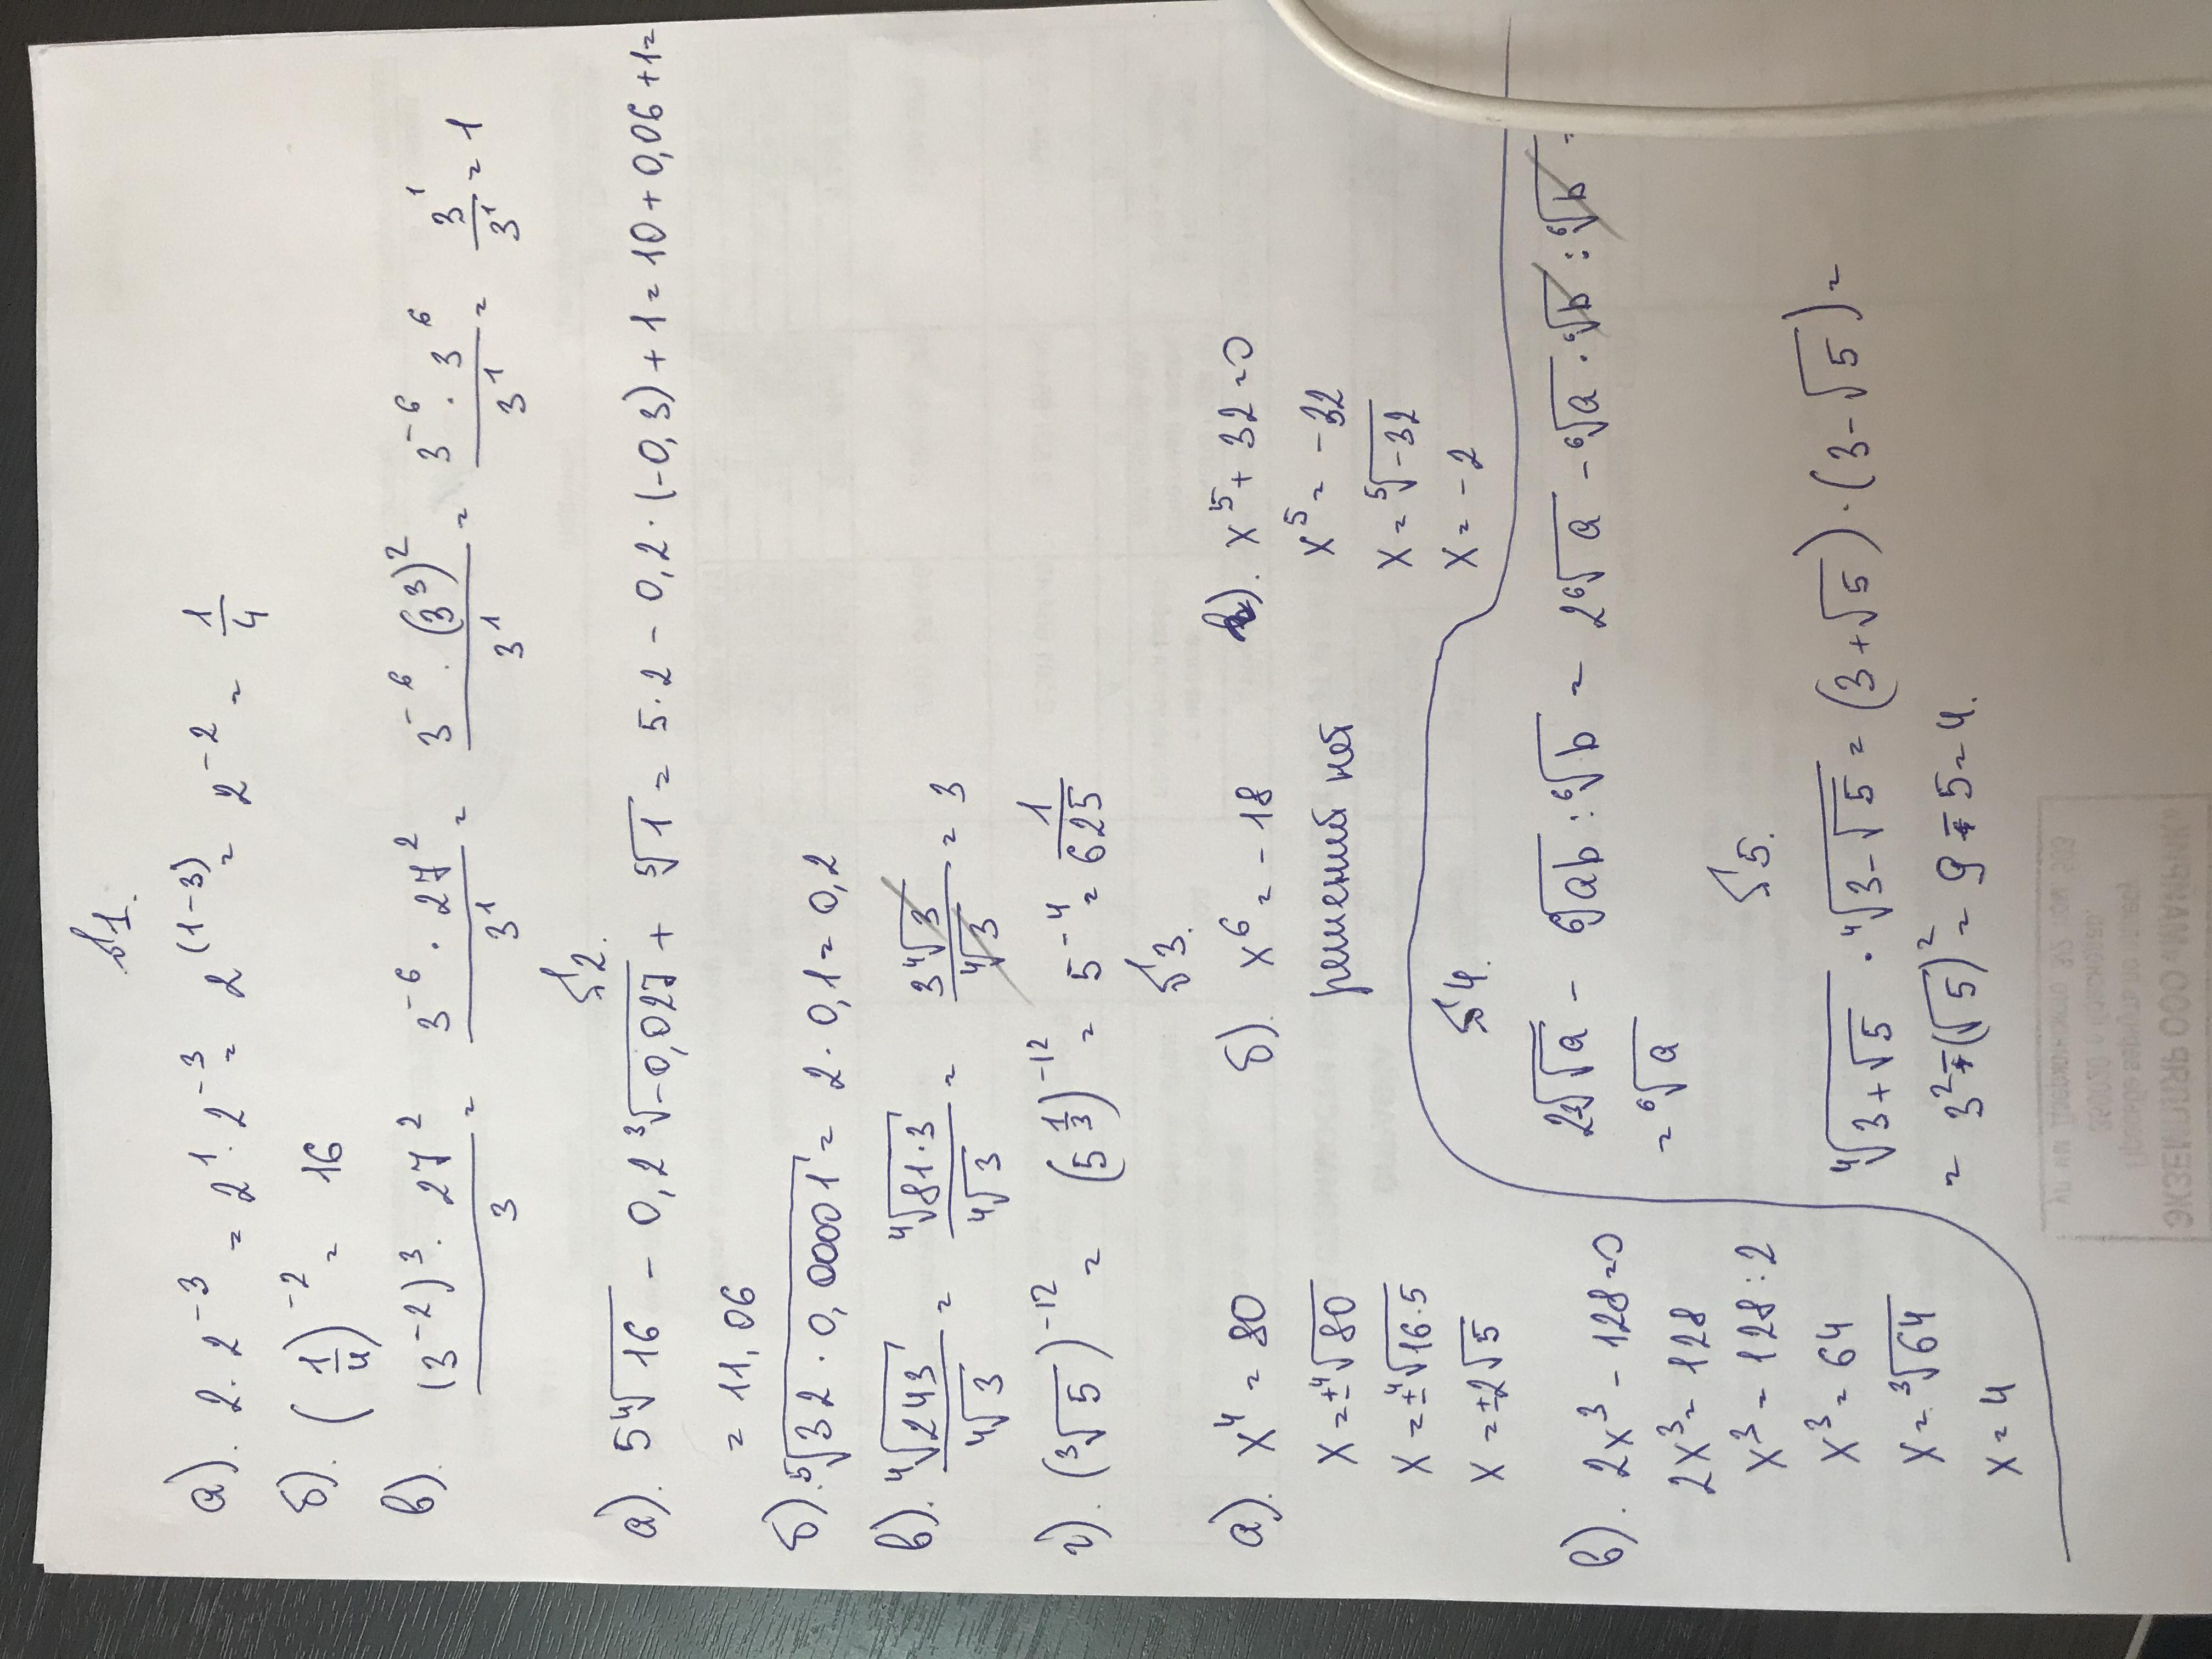 №1.
а). 2 · 2⁻³ = 2¹ · 2⁻³ = 2⁽¹⁻³⁾ = 2⁻² = 1/4
б). (1/4)⁻² = 16
в). (3⁻²)³ · 27² / 3 = 3⁻⁶ · 27² / 3¹ = 3⁻⁶ · (3³)² / 3¹ = 3⁻⁶ · 3⁶ / 3¹ = 3¹ / 3¹ = 1
№2.
а). 5⁴√16 − 0,2 ³√−0,027 + ⁵√1 = 5 · 2 − 0,2 · (−0,3) + 1 = 10 + 0,06 + 1 =
= 11,06
б). ⁵√32 · 0,00001 = 2 · 0,1 = 0,2
в). ⁴√243 / ⁴√3 = ⁴√81·3 / ⁴√3 = 3⁴√3 / ⁴√3 = 3
г). (³√5)⁻¹² = (5^(1/3))⁻¹² = 5⁻⁴ = 1/625
№3.
а). x⁴ = 80
x = ± ⁴√80
x = ± ⁴√16·5
x = ±2√5
б). x⁶ = −18
решений нет
в). 2x³ − 128 = 0
2x³ = 128
x³ = 128 : 2
x³ = 64
x = ³√64
x = 4
). x⁵ + 32 = 0
x⁵ = −32
x = ⁵√−32
x = −2
№4.
2³√√a − ⁶√ab : ⁶√b = 2⁶√a − ⁶√a · ⁶√b : ⁶√b =
= ⁶√a
№5.
⁴√3+√5 · ⁴√3−√5 = (3+√5) · (3−√5) =
= 3² − (√5)² = 9 − 5 = 4.